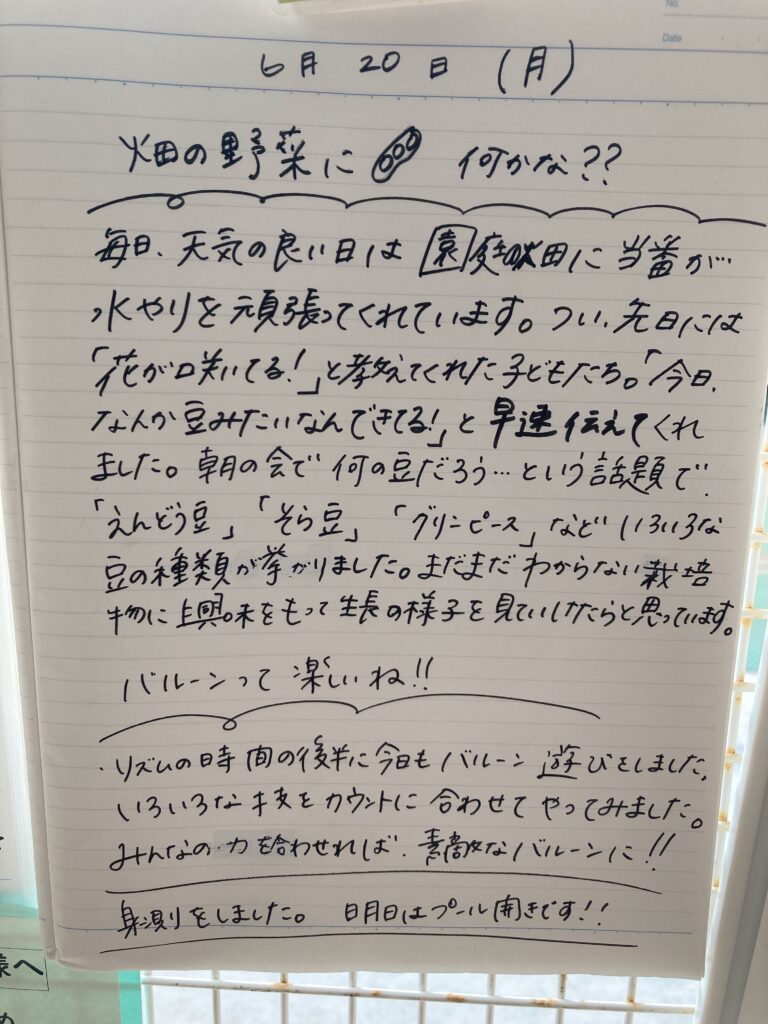 No.
Date
6月 20日 (月)
畑の野菜に 何かな??
毎日、天気の良い日は園庭の畑に当番が…
水やりを頑張ってくれています。つい、先日には
「花が咲いてる!」と教えてくれた子どもたち。「今日、
なんか豆みたいなんできてる!」と早速伝えてくれ
ました。朝の会で何の豆だろう…という話題で、
「えんどう豆」「そら豆」「グリーンピース」など いろいろな
豆の種類が挙がりました。まだまだわからない栽培
物に興味をもって生長の様子を見ていけたらと思っています。
バルーンって楽しいね!!
・リズムの時間の後半に今日もバルーン遊びをしました。
いろいろな技をカウントに合わせてやってみました。
みんなの力を合わせれば、素敵なバルーンに!!
身測をしました。 明日はプール開きです!!
様へ